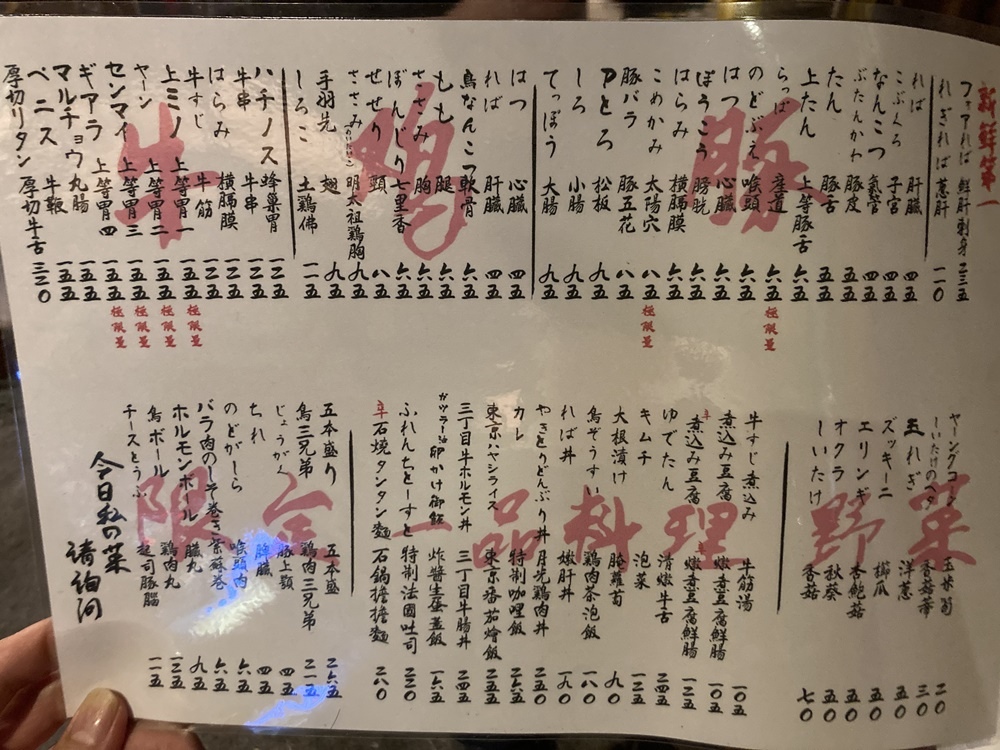 新鮮第一
フォアれば 鮮肝刺身 二三五
れぎれば 蔥肝 一一〇
豚
れば 肝臓 四五
こぶくろ 子宮 四五
なんこつ 氣管 四五
ぶたんかわ 豚皮 五五
たん 豚舌 五五
上たん 上等豚舌 六五
らっぱ 産道 六五 極限量
のどぶえ 喉頭 六五
はつ 心臓 六五
ぼうこう 膀胱 六五
はらみ 横膈膜 六五
こめかみ 太陽穴 八五 極限量
豚バラ 豚五花 八五
Pとろ 松板 九五
しろ 小腸 九五
てっぽう 大腸 九五
鶏
はつ 心臓 四五
れば 肝臓 四五
鳥なんこつ 軟骨 六五
もも 腿 六五
ささみ 胸 六五
ぼんじり 七里香 六五
せせり 頸 八五
ささみ 明太祖鶏胸 九五
手羽先 翅 九五
しろこ 土鶏佛 一一五
牛
ハチノス 蜂巢胃 一二五
牛串 牛串 一五五
はらみ 横膈膜 一五五
牛すじ 牛筋 一二五
上ミノ 上等胃一 一五五 極限量
ヤーン 上等胃二 一五五 極限量
センマイ 上等胃三 一五五 極限量
ギアラ 上等胃四 一五五 極限量
マルチョウ 丸腸 一五五
ペニス 牛鞭 一五五
厚切リタン 厚切牛舌 三二〇
野菜
ヤーングコーン 玉米筍 二〇
しいたけのヘタ 香菇蒂 三〇
玉ねぎ 洋蔥 五〇
ズッキーニ 櫛瓜 五〇
エリンギ 杏鮑菇 五〇
オクラ 秋葵 五〇
しいたけ 香菇 七〇
一品料理
牛すじ煮込み 牛筋湯 一〇五
煮込み豆腐 燉煮豆腐鮮腸 一〇五
辛煮込み豆腐 辛燉煮豆腐鮮腸 一二五
ゆでたん 清燉牛舌 二四五
キムチ 泡菜 一二五
大根漬け 醃蘿蔔 九〇
鳥ぞうすい 鶏肉茶泡飯 一八〇
れば丼 嫩肝丼 一九〇
やきとりどんぶり丼 月光鶏肉丼 二五〇
カレー 特制咖哩飯 二六五
東京ハヤシライス 東京番茄燴飯 二五五
三丁目牛ホルモン丼 三丁目牛腸丼 二四五
ガツラー油卵かけ御飯 炸醬生蛋蓋飯 一六五
ふれんちとーすと 特制法國吐司 二三〇
辛石燒タンタン麵 石鍋擔擔麵 二八〇
限金
五本盛り 五本盛 二六五
鳥三兄弟 鶏肉三兄弟 二一五
じょうがく 豚上顎 四五
ちれ 脾臓 四五
のどがしら 喉頭肉 六五
バラ肉のしそ巻き 紫蘇巻 六五
ホルモンボール 臓丸 九五
鳥ボール 鶏肉丸 一三五
チーズとうふ 起司豚腦 一一五
今日私の菜
請詢問